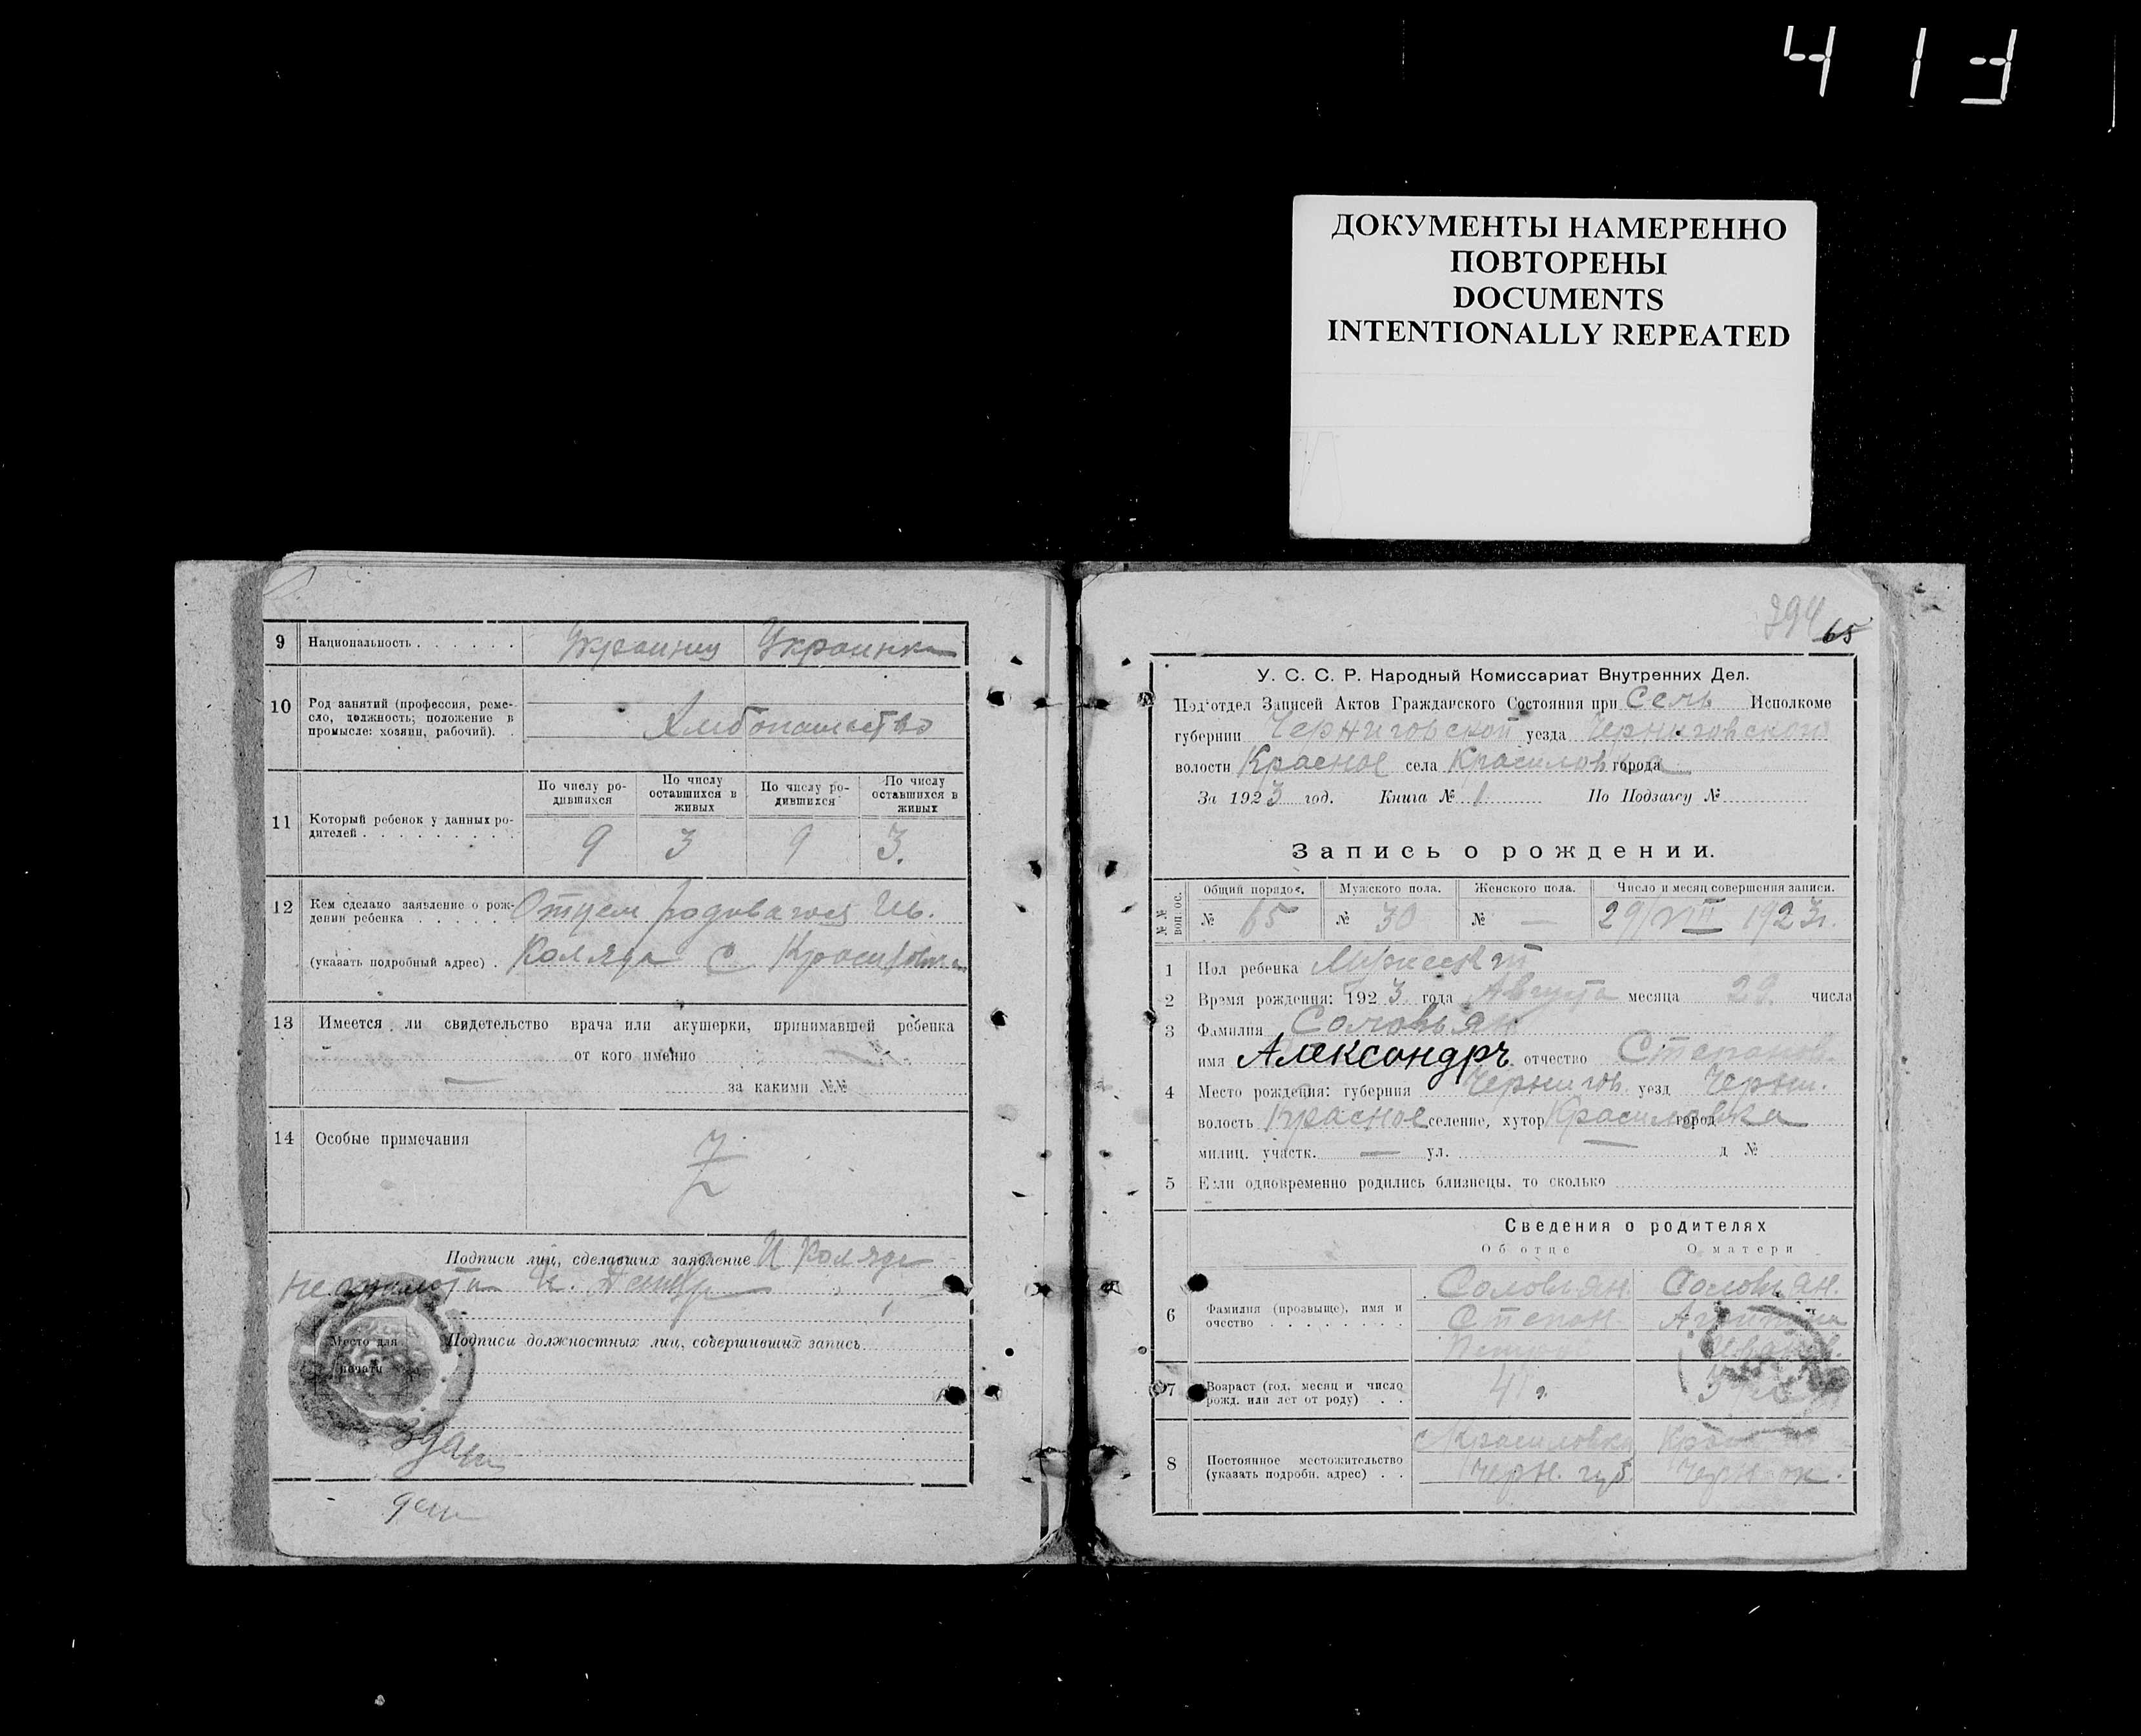 413
ДОКУМЕНТЫ НАМЕРЕННО
ПОВТОРЕНЫ
DOCUMENTS
INTENTIONALLY REPEATED
9 Национальность . . . . . . Украинец Украинка
10 Род занятий (профессия, реме-
сло, должность; положение в
промысле: хозяин, рабочий). .
Хлібопашество
11 Который ребенок у данных ро-
дителей . . . . . . . . .
По числу ро-
дившихся
По числу
оставшихся в
живых
По числу ро-
дившихся
По числу
оставшихся в
живых
9 3 9 3.
12 Кем сделано заявление о рож-
дении ребенка . . . . Отцем Ив.
(указать подробный адрес) . Коляда с Красиловка
13 Имеется ли свидетельство врача или акушерки, принимавшей ребенка
от кого именно
— за какими №№
14 Особые примечания
Подписи лиц, сделавших заявление И Коляда
Место для
печати
Подписи должностных лиц, совершивших запись
294 65
У. С. С. Р. Народный Комиссариат Внутренних Дел.
Подотдел Записей Актов Гражданского Состояния при Селъ Исполкоме
губернии Черниговской уезда Черниговского
волости Красное села Красиловка города
За 1923 год. Книга № 1 По Подзагсу №
Запись о рождении.
№№ вопрос.
Общий порядок. Мужского пола. Женского пола. Число и месяц совершения записи.
№ 65 № 30 № — 29/VIII 1923г.
1 Пол ребенка Мужеский
2 Время рождения: 1923 года Августа месяца 29. числа
3 Фамилия Соловьян
имя Александръ отчество Степанов.
4 Место рождения: губерния Чернигов. уезд Черни.
волость Красное селение, хутор Красиловка город
милиц. участк. — ул. — д №
5 Если одновременно родились близнецы, то сколько
Сведения о родителях
Об отце О матери
6 Фамилия (прозвище), имя и
очество . . . . . . . .
Соловьян. Соловьян.
Степан
7 Возраст (год, месяц и число
рожд. или лет от роду) . .
41
8 Постоянное местожительство
(указать подробн. адрес) . .
с Красиловка
Черн. губ